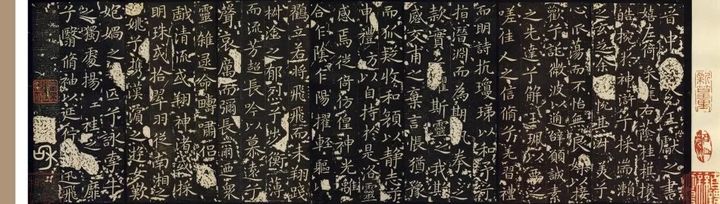 晉中書 王獻之書
嬉左倚采旄右蔭桂旗攘
皓腕於神滸兮採湍瀨
之玄芝 其淑美兮
心振蕩而不怡無良媒以接
懽兮託微波以通辭願誠素
之先達兮解玉珮以要之
嗟佳人之信脩兮羌習禮
而明詩抗瓊珶以和予兮
指潛淵而為期執拳拳之
款實兮懼斯靈之我欺
感交甫之棄言悵猶豫
而狐疑收和顏以靜志兮
申禮防以自持於是洛靈
感焉徙倚仿偟神光離
合乍陰乍陽擢輕軀以
鶴立若將飛飛而未翔踐
椒塗之郁烈兮步衡薄
而流芳超長吟以慕遠兮
聲哀厲而彌長爾迺眾
靈雜遝命疇嘯侶或
戲清流或翔神渚或採
明珠或拾翠羽從南湘
姚兮攜漢濱之遊女歎
妃媧之無匹兮詠牽牛
之獨處揚 袿之 靡
兮翳脩袖以延佇 迅飛